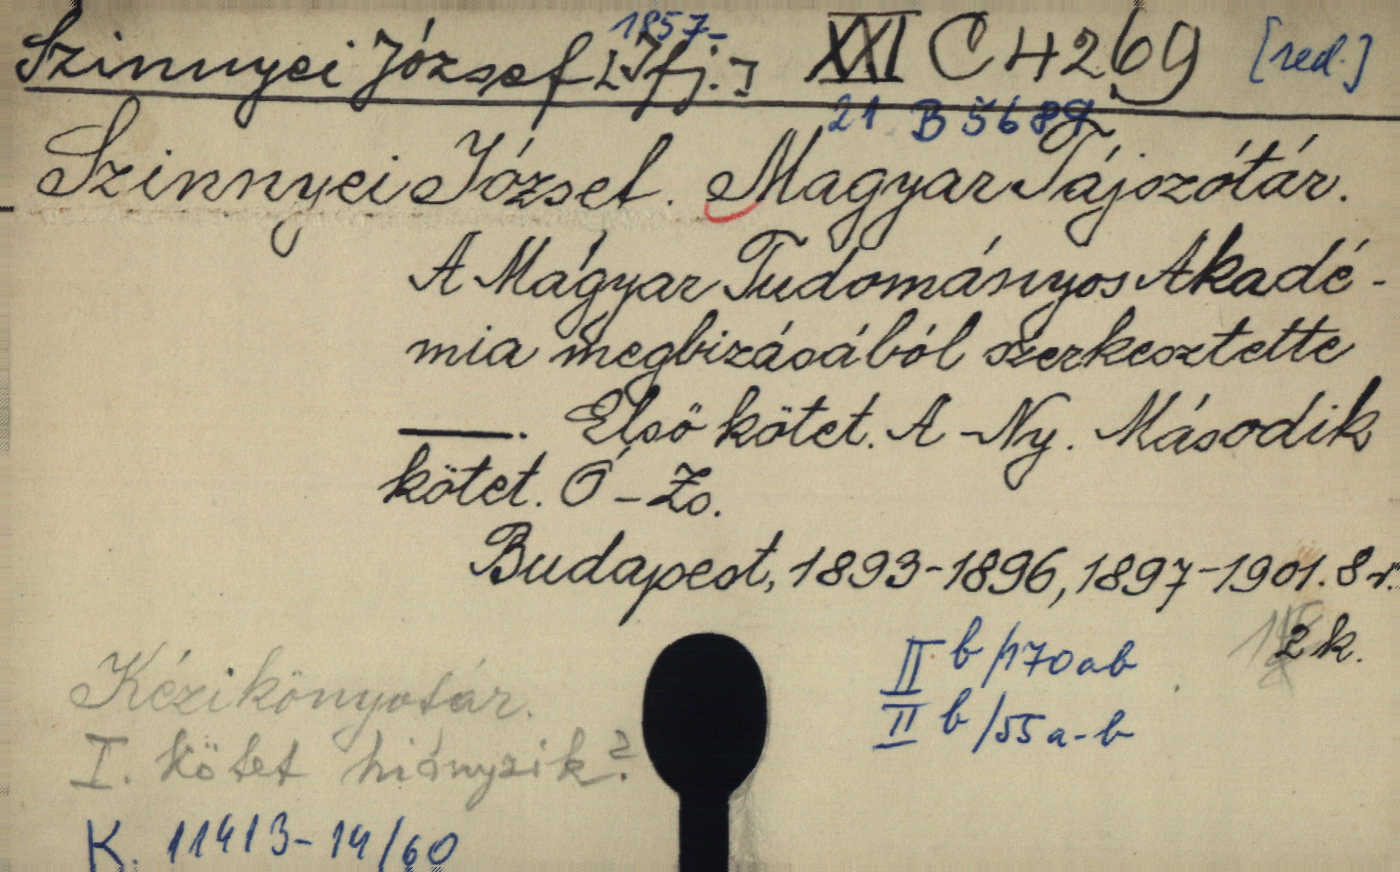 1857-
Szinnyei József [Ifj.] XXI C 4269 [red.]
21 B 5689
Szinnyei József. Magyar Tájszótár.
A Magyar Tudományos Akadé-
mia megbizásából szerkesztette
——. Első kötet. A-Ny. Második
kötet. Ó-Zs.
Budapest, 1893-1896, 1897-1901. 8r.
2 k.
II b/170ab
II b/55a-b
Kézikönyvtár.
I. kötet hiányzik?
K. 11413-14/60